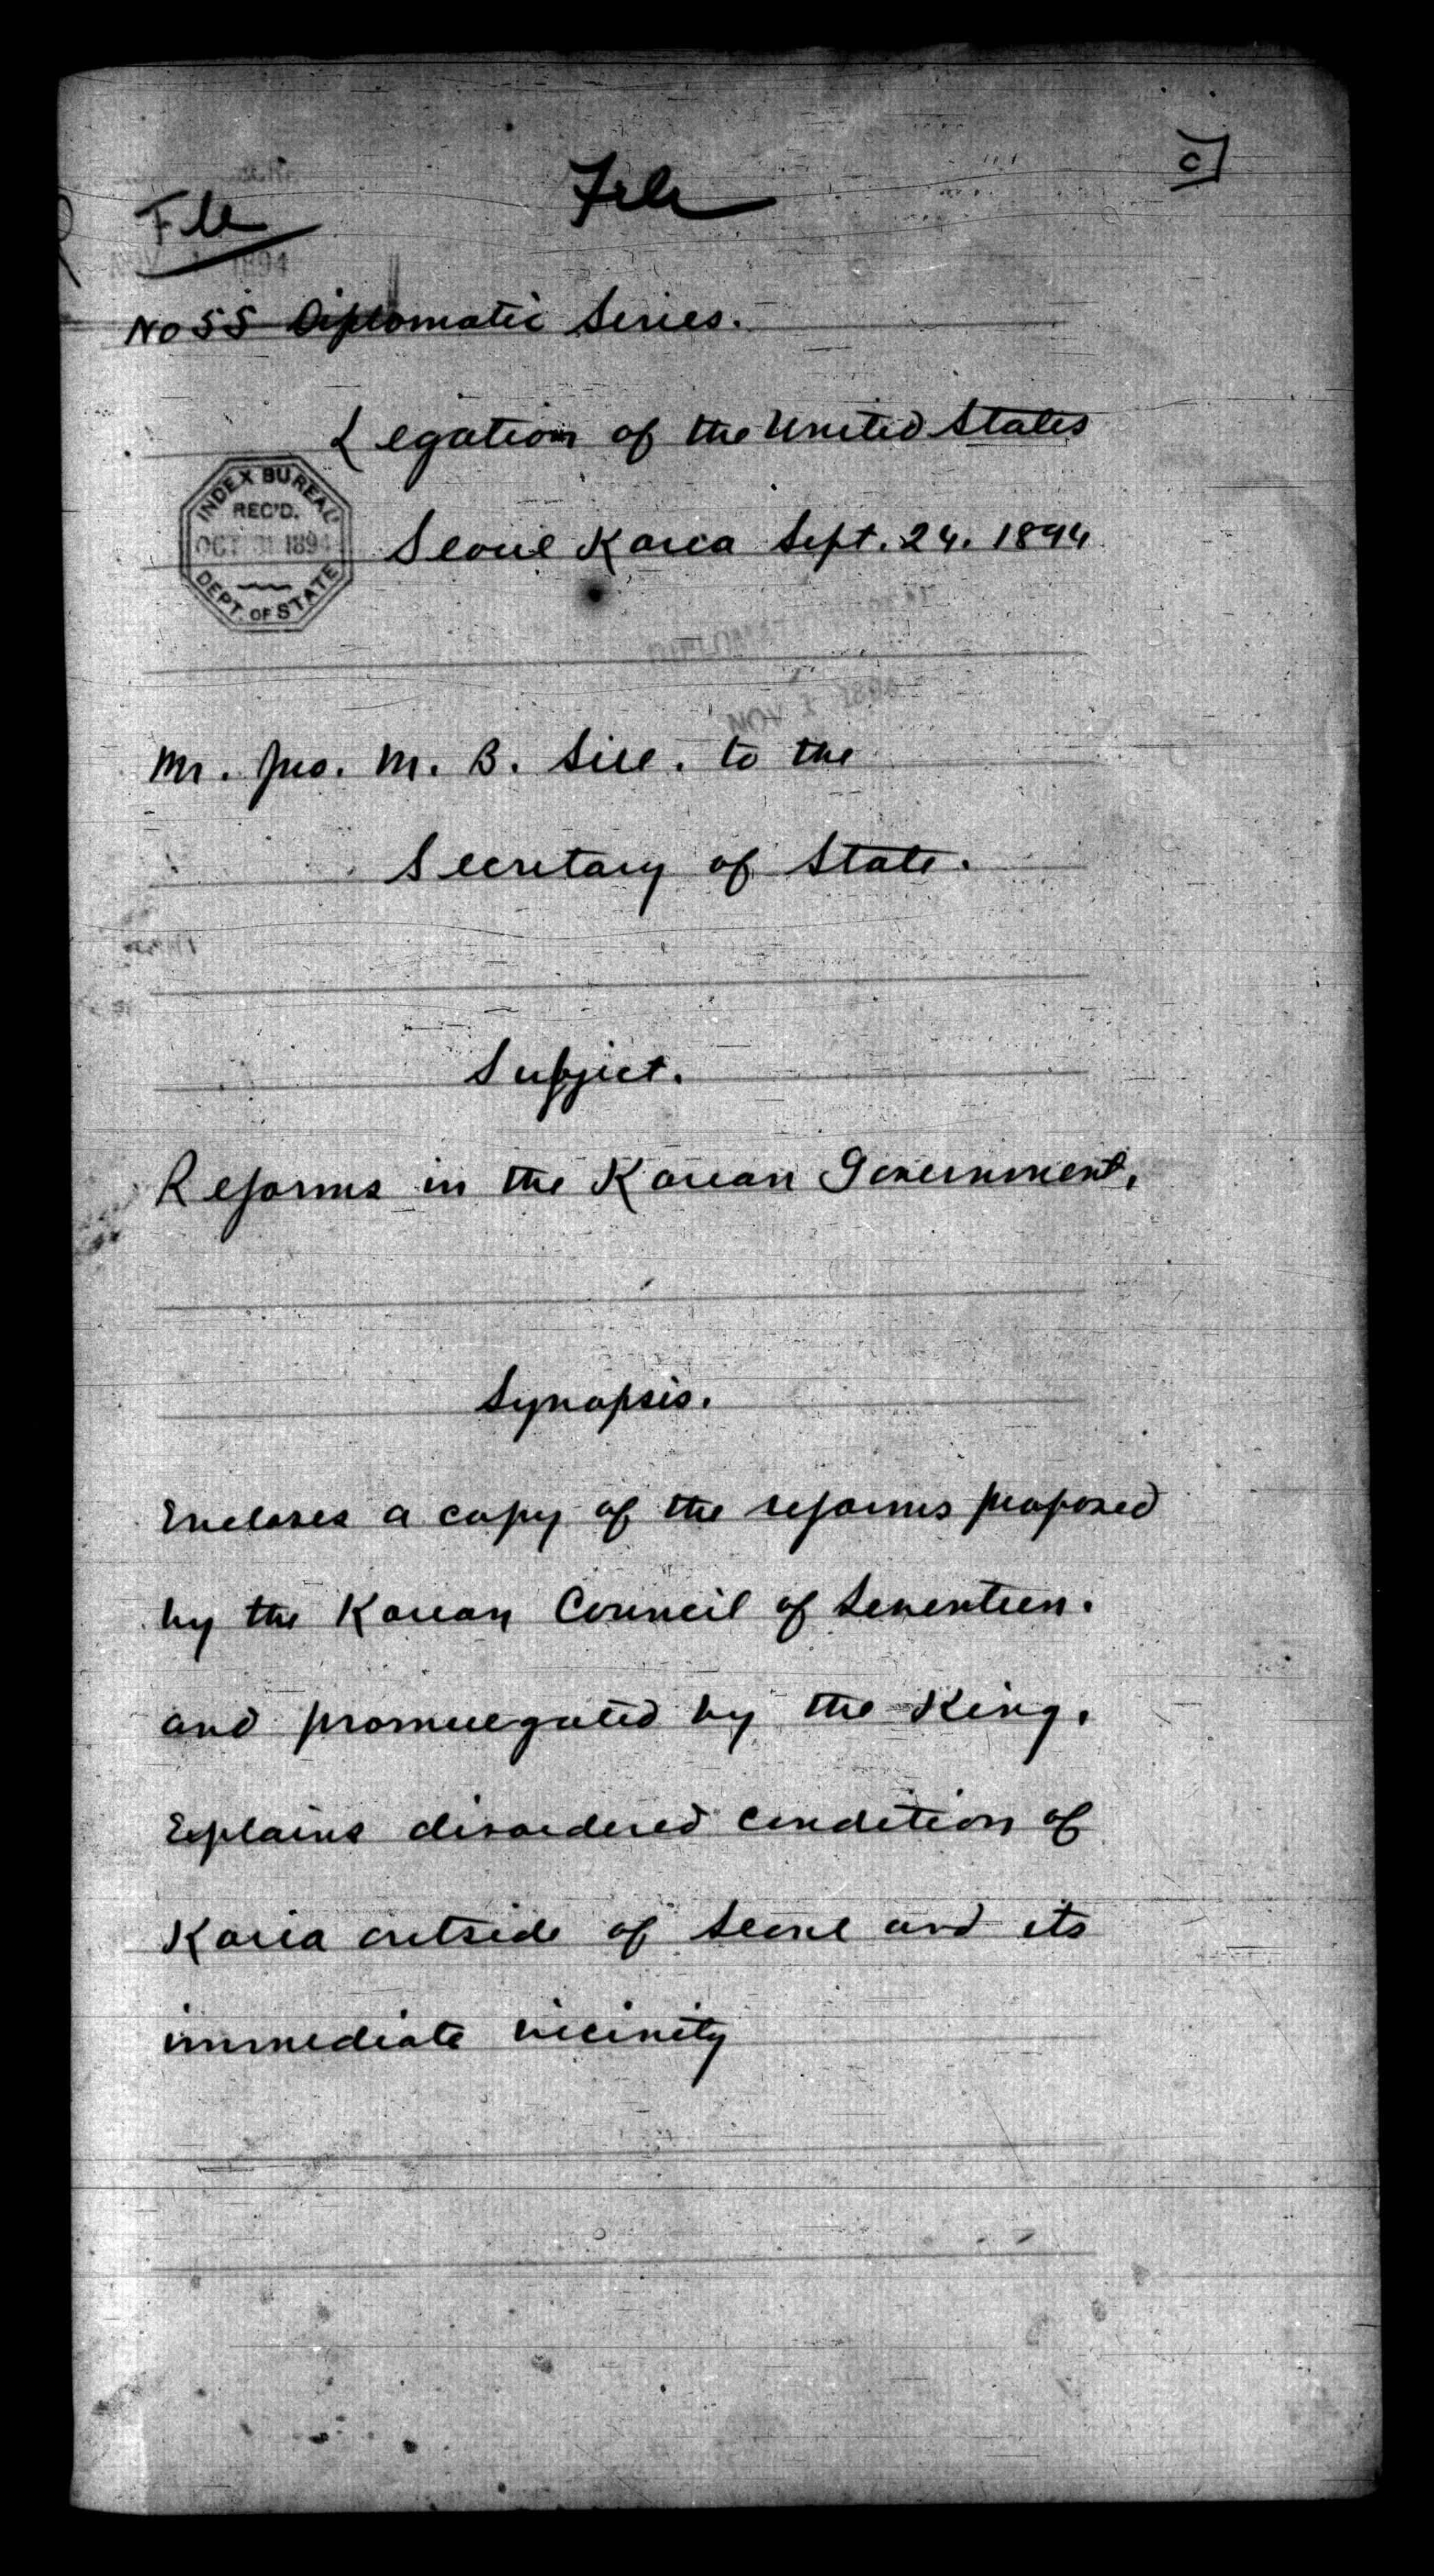 File
File
C
NOV 1 1894
No 55 Diplomatic Series.
Legation of the United States
INDEX BUREAU
REC'D.
OCT 31 1894
DEPT. OF STATE
Seoul Korea Sept. 24. 1894
NOV 1 1894
Mr. Jno. M. B. Sill. to the
Secretary of State.
Subject.
Reforms in the Korean Government.
Synopsis.
Encloses a copy of the reforms proposed
by the Korean Council of Seventeen.
and promulgated by the King.
Explains disordered condition of
Korea outside of Seoul and its
immediate vicinity